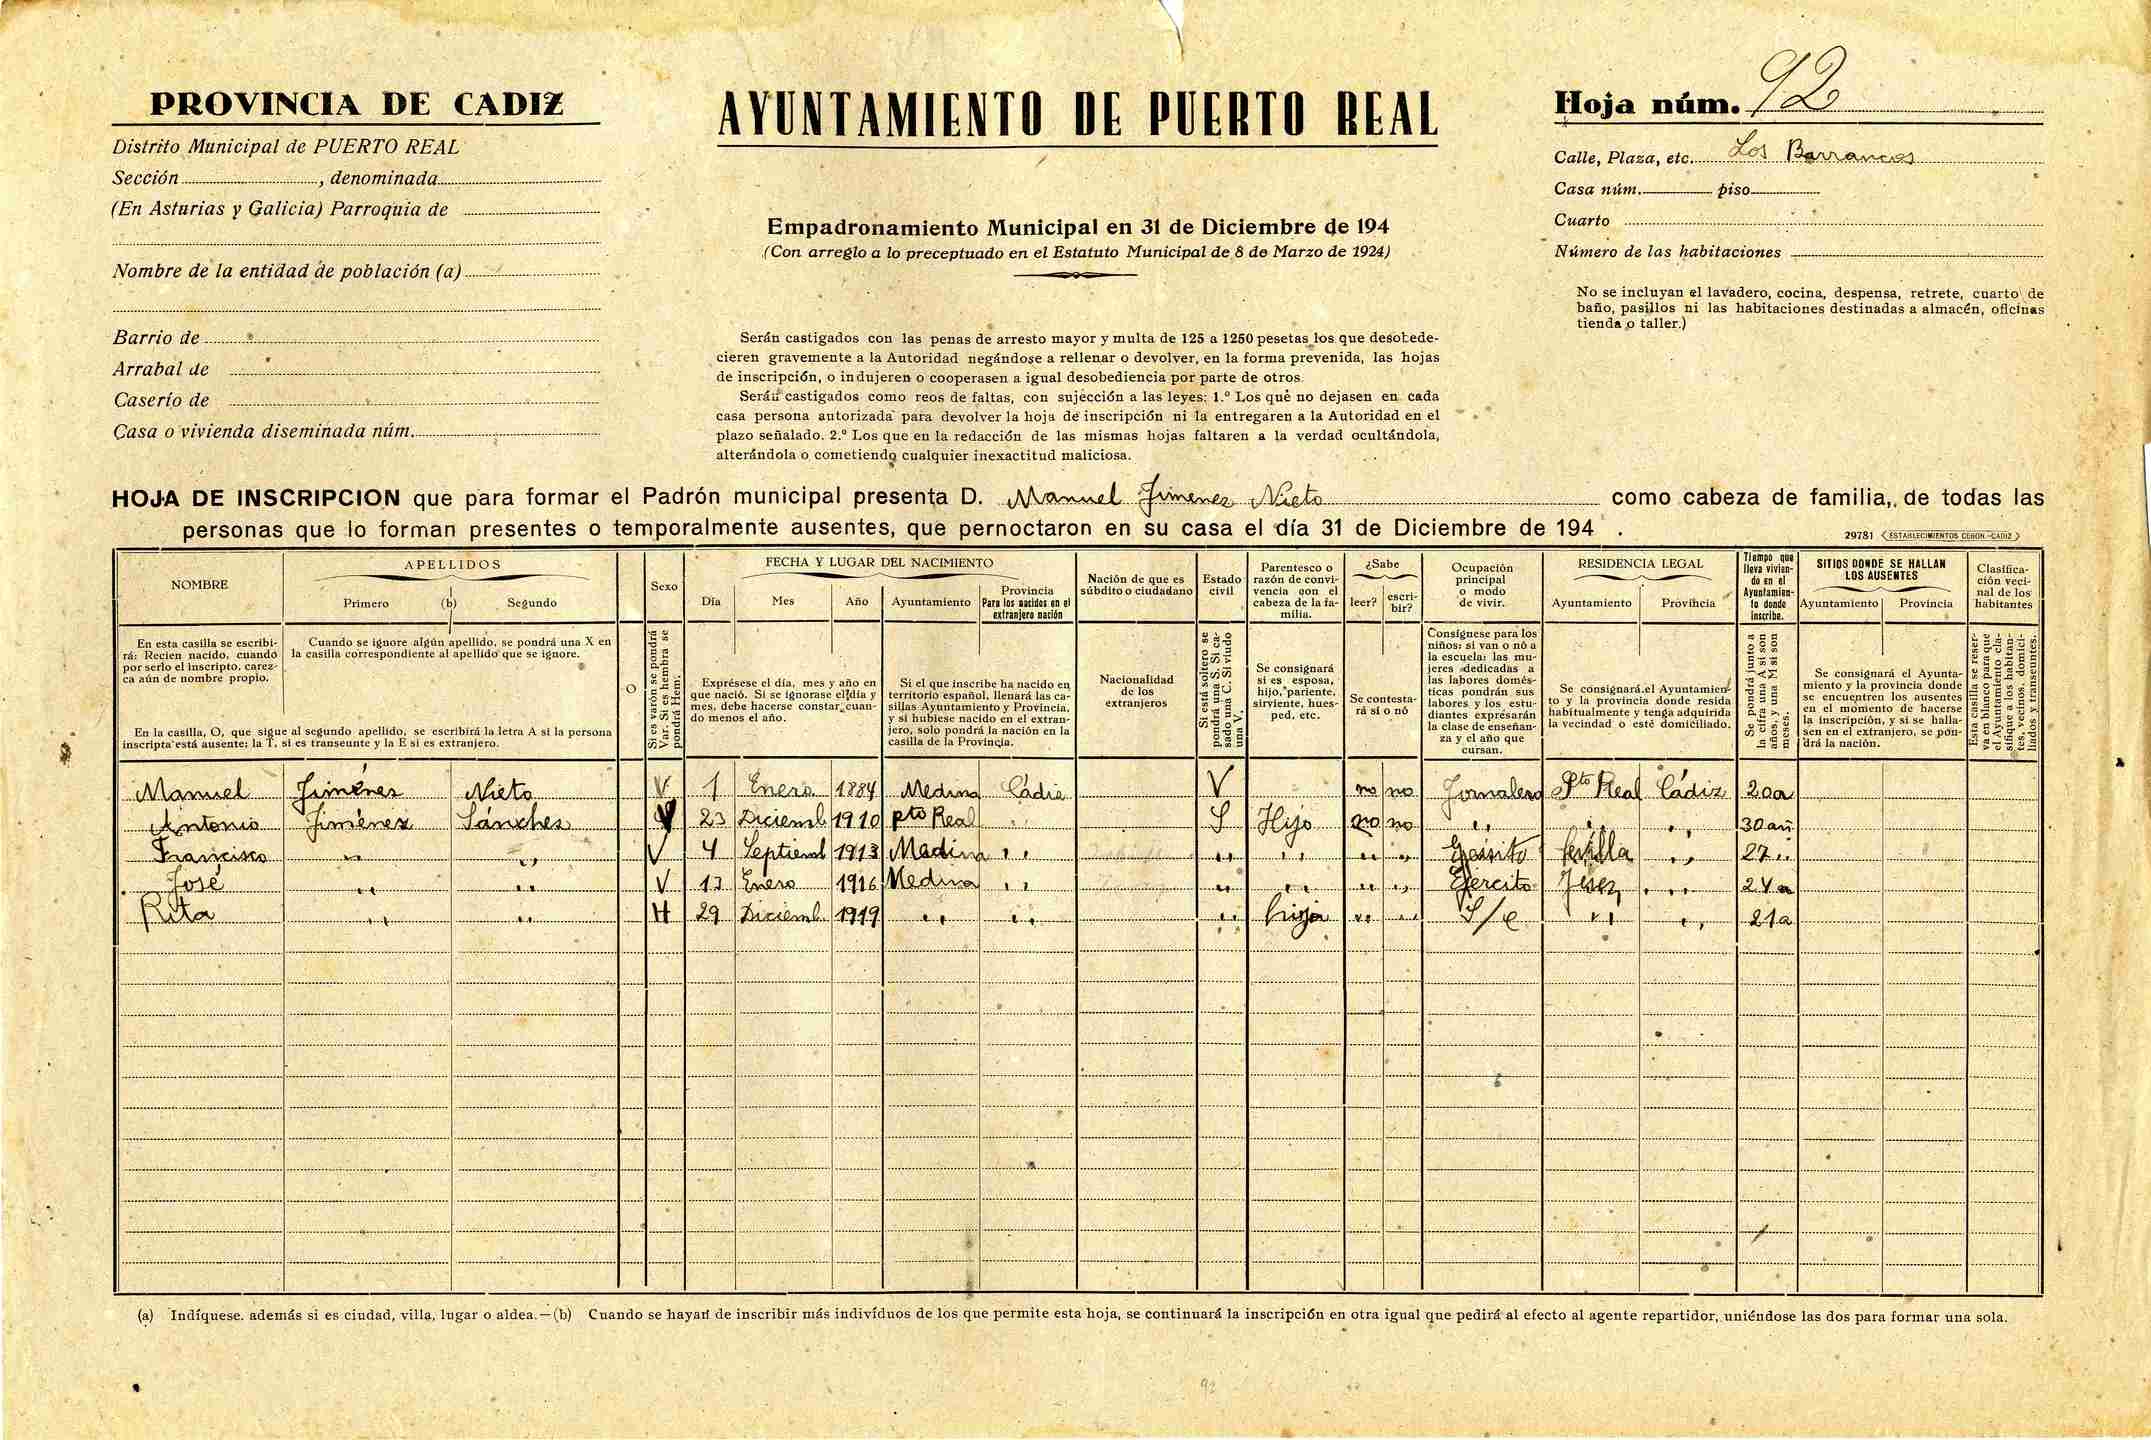 PROVINCIA DE CADIZ
Distrito Municipal de PUERTO REAL
Sección , denominada
(En Asturias y Galicia) Parroquia de
Nombre de la entidad de población (a)
Barrio de
Arrabal de
Caserío de
Casa o vivienda diseminada núm.
AYUNTAMIENTO DE PUERTO REAL
Empadronamiento Municipal en 31 de Diciembre de 194
(Con arreglo a lo preceptuado en el Estatuto Municipal de 8 de Marzo de 1924)
Serán castigados con las penas de arresto mayor y multa de 125 a 1250 pesetas los que desobede-
cieren gravemente a la Autoridad negándose a rellenar o devolver, en la forma prevenida, las hojas
de inscripción, o indujeren o cooperasen a igual desobediencia por parte de otros.
Serán castigados como reos de faltas, con sujección a las leyes: 1.º Los que no dejasen en cada
casa persona autorizada para devolver la hoja de inscripción ni la entregaren a la Autoridad en el
plazo señalado. 2.º Los que en la redacción de las mismas hojas faltaren a la verdad ocultándola,
alterándola o cometiendo cualquier inexactitud maliciosa.
Hoja núm. 92
Calle, Plaza, etc. Los Barrancos
Casa núm. piso
Cuarto
Número de las habitaciones
No se incluyan el lavadero, cocina, despensa, retrete, cuarto de
baño, pasillos ni las habitaciones destinadas a almacén, oficinas
tienda o taller.)
HOJA DE INSCRIPCION que para formar el Padrón municipal presenta D. Manuel Jimenez Nieto como cabeza de familia, de todas las
personas que lo forman presentes o temporalmente ausentes, que pernoctaron en su casa el día 31 de Diciembre de 194 .
29781 ESTABLECIMIENTOS CERON.-CADIZ
NOMBRE
En esta casilla se escribi-
rá: Recien nacido, cuando
por serlo el inscripto, carez-
ca aún de nombre propio.
APELLIDOS
Primero (b) Segundo
Cuando se ignore algún apellido, se pondrá una X en
la casilla correspondiente al apellido que se ignore.
En la casilla, O, que sigue al segundo apellido, se escribirá la letra A si la persona
inscripta está ausente: la T, si es transeunte y la E si es extranjero.
O
Sexo
Si es varón se pondrá
Var. Si es hembra se
pondrá Hem.
FECHA Y LUGAR DEL NACIMIENTO
Día Mes Año Ayuntamiento
Provincia
Para los nacidos en el
extranjero nación
Exprésese el día, mes y año en
que nació. Si se ignorase el día y
mes, debe hacerse constar cuan-
do menos el año.
Si el que inscribe ha nacido en
territorio español, llenará las ca-
sillas Ayuntamiento y Provincia,
y si hubiese nacido en el extran-
jero, solo pondrá la nación en la
casilla de la Provincia.
Nación de que es
súbdito o ciudadano
Nacionalidad
de los
extranjeros
Estado
civil
Si está soltero se
pondrá una S. Si ca-
sado una C. Si viudo
una V.
Parentesco o
razón de convi-
vencia con el
cabeza de la fa-
milia.
Se consignará
si es esposa,
hijo, pariente,
sirviente, hues-
ped, etc.
¿Sabe
leer? escri-
bir?
Se contesta-
rá sí o nó
Ocupación
principal
o modo
de vivir.
Consígnese para los
niños: si van o nó a
la escuela: las mu-
jeres dedicadas a
las labores domés-
ticas pondrán sus
labores y los estu-
diantes expresarán
la clase de enseñan-
za y el año que
cursan.
RESIDENCIA LEGAL
Ayuntamiento Provincia
Se consignará el Ayuntamien-
to y la provincia donde resida
habitualmente y tenga adquirida
la vecindad o esté domiciliado.
Tiempo que
lleva vivien-
do en el
Ayuntamien-
to donde
inscribe.
Se pondrá junto a
la cifra una A si son
años, y una M si son
meses.
SITIOS DONDE SE HALLAN
LOS AUSENTES
Ayuntamiento Provincia
Se consignará el Ayunta-
miento y la provincia donde
se encuentren los ausentes
en el momento de hacerse
la inscripción, y si se halla-
sen en el extranjero, se pon-
drá la nación.
Clasifica-
ción veci-
nal de los
habitantes
Esta casilla se reser-
va en blanco para que
el Ayuntamiento cla-
sifique a los habitan-
tes, vecinos, domici-
liados y transeuntes.
Manuel Jiménez Nieto V 1 Enero 1884 Medina Cádiz V no no Jornalero Pto Real Cádiz 20a
Antonio Jiménez Sánches V 23 Diciemb 1910 pto Real " S Hijo no no " " " 30 añ
Francisco " " V 4 Septiemb 1913 Medina " " " " " Sevilla " 27 "
José " " V 13 Enero 1916 Medina " " " " " Ejercito Jerez " 24 a
Rita " " H 29 Diciemb 1919 " " " hija " " S/c " " 21a
(a) Indíquese. además si es ciudad, villa, lugar o aldea.—(b) Cuando se hayan de inscribir más indivíduos de los que permite esta hoja, se continuará la inscripción en otra igual que pedirá al efecto al agente repartidor, uniéndose las dos para formar una sola.
92